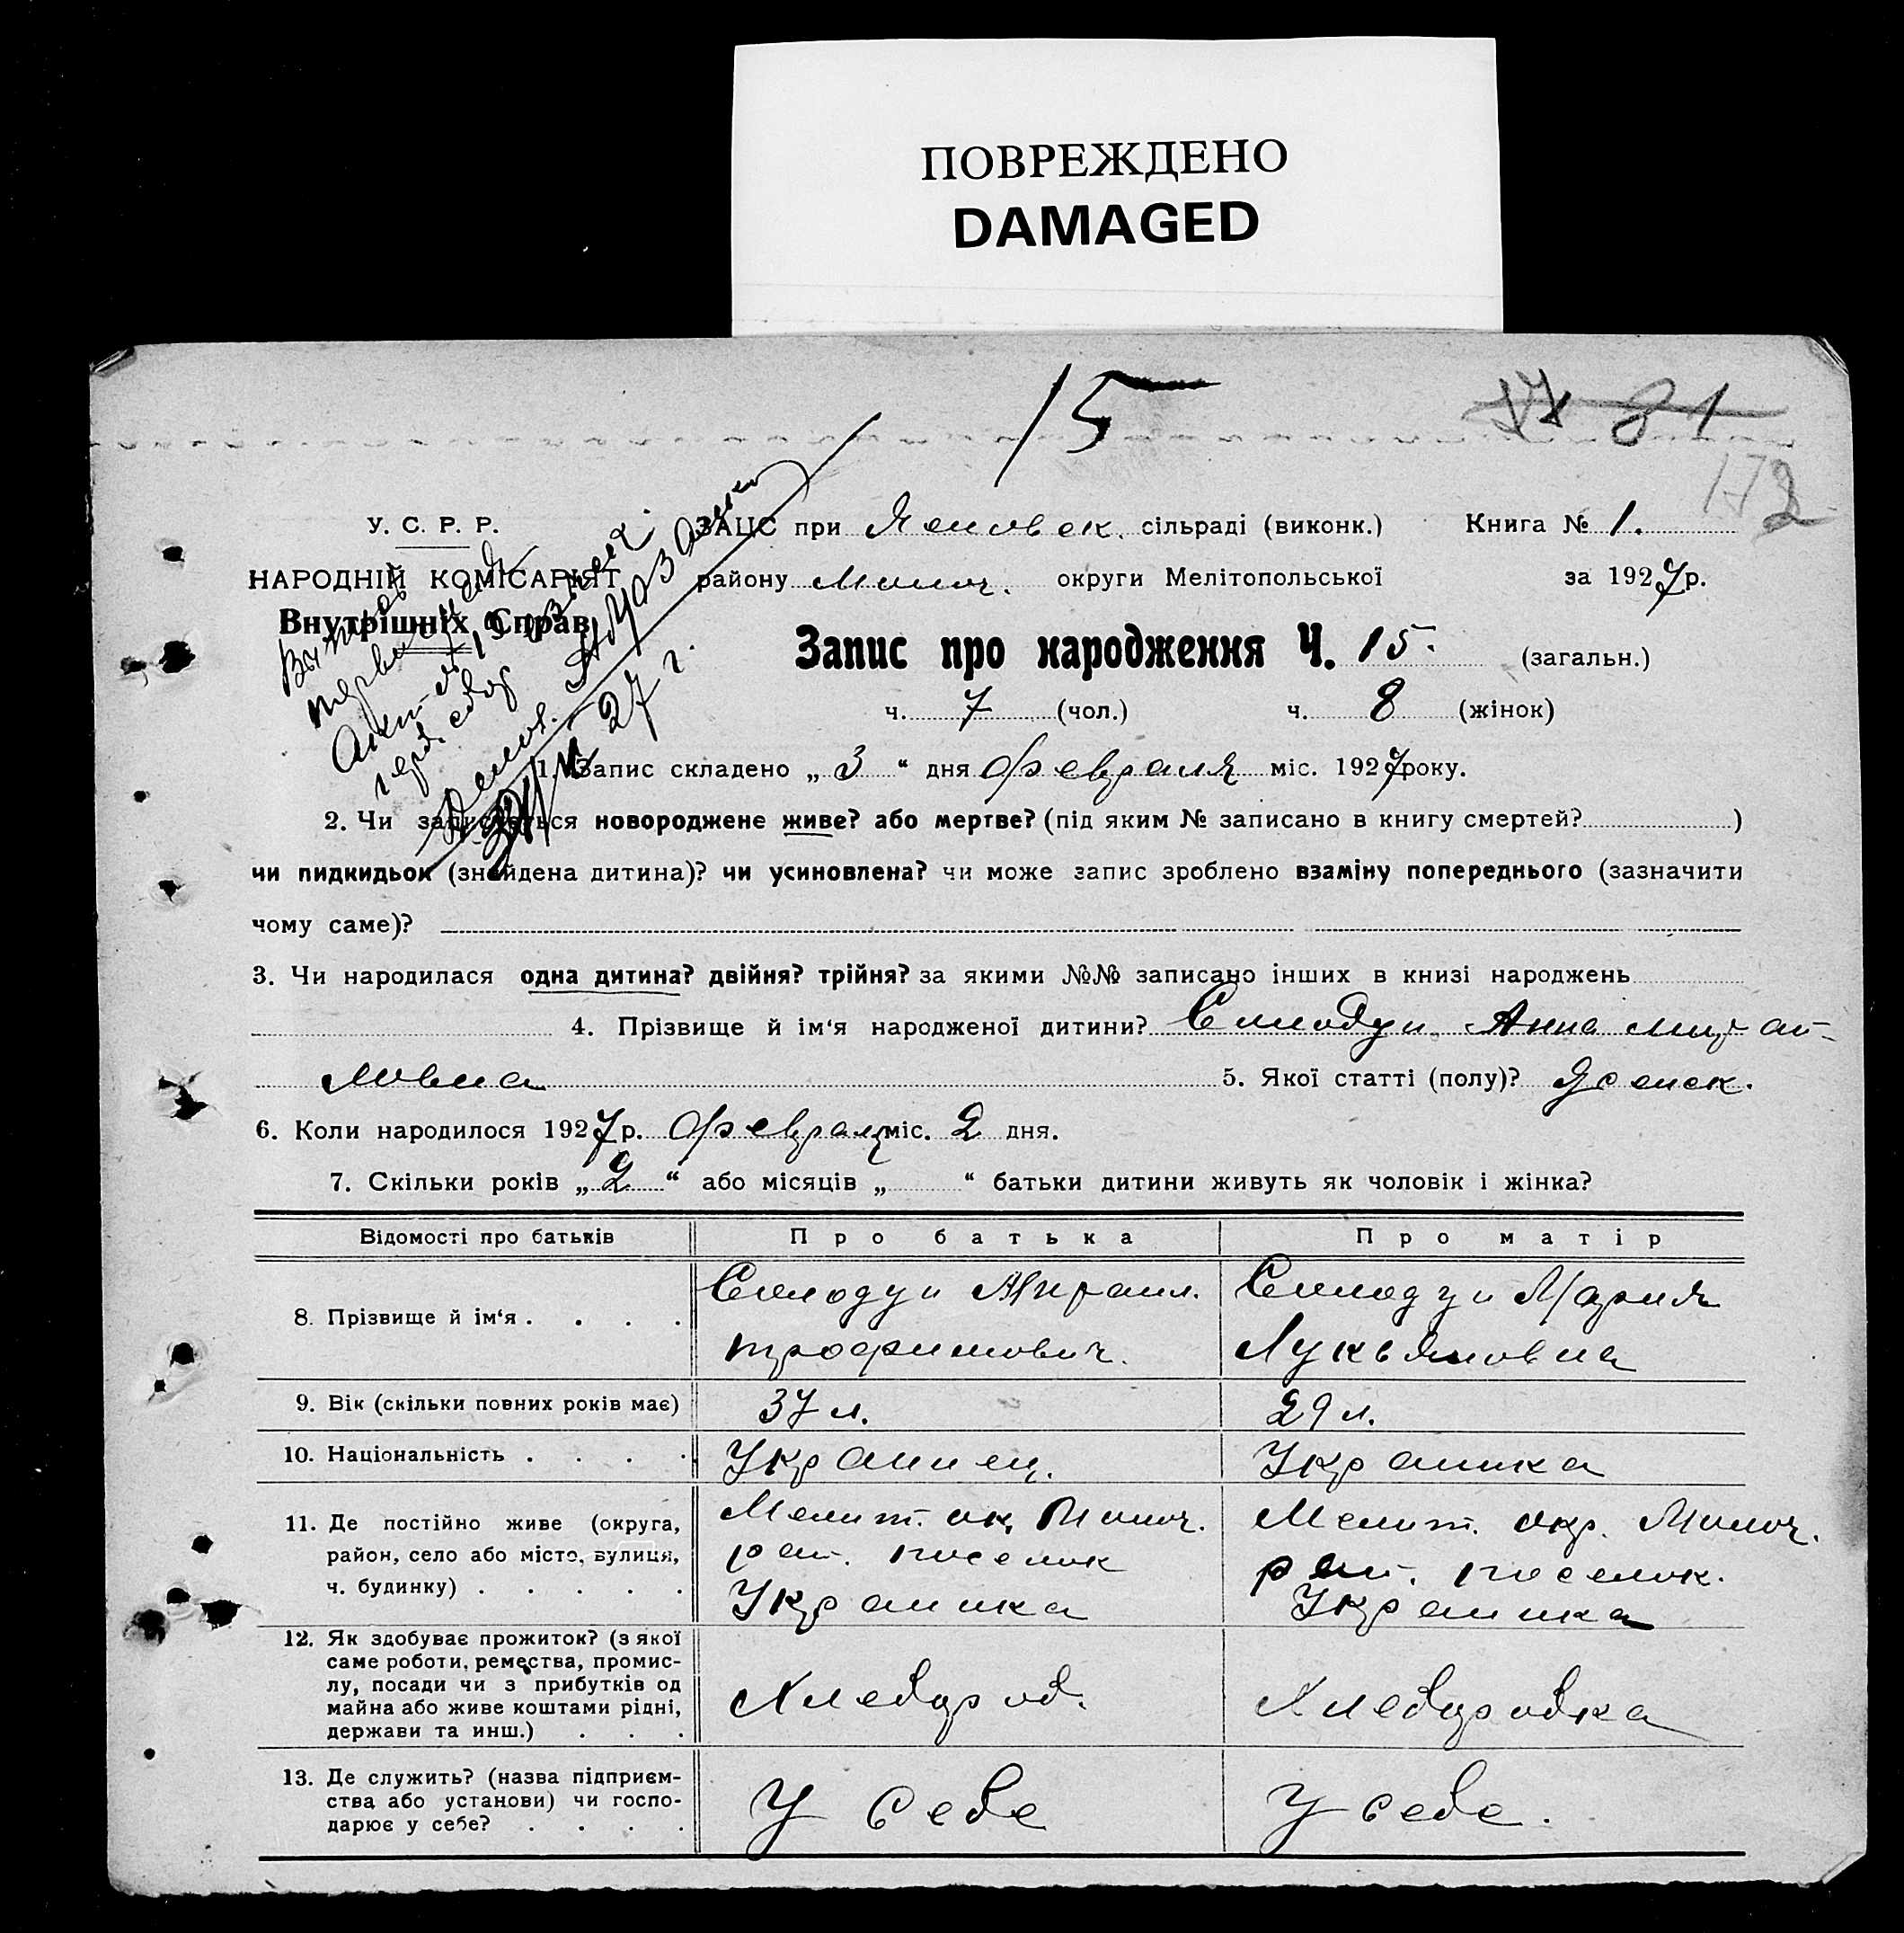 ПОВРЕЖДЕНО
DAMAGED
15
17 81
172
У. С. Р. Р.
НАРОДНІЙ КОМІСАРІЯТ
Внутрішніх Справ
27 г.
ЗАЦС при сільраді (виконк.) Книга № 1.
району Молоч. округи Мелітопольської за 1927 р.
Запис про народження Ч. 15. (загальн.)
ч. 7 (чол.) ч. 8 (жінок)
1. Запис складено „ 3 “ дня февраля міс. 1927 року.
2. Чи записується новороджене живе? або мертве? (під яким № записано в книгу смертей? )
чи пидкидьок (знайдена дитина)? чи усиновлена? чи може запис зроблено взаміну попереднього (зазначити
чому саме)?
3. Чи народилася одна дитина? двійня? трійня? за якими №№ записано інших в книзі народжень
4. Прізвище й ім‘я народженої дитини? Анна Михай-
ловна 5. Якої статті (полу)? Женск.
6. Коли народилося 1927 р. февраля міс. 2 дня.
7. Скільки років „ 2 “ або місяців „ “ батьки дитини живуть як чоловік і жінка?
Відомості про батьків Про батька Про матір
8. Прізвище й ім‘я . . . . Михаил. Мария
Трофимович. Лукьяновна
9. Вік (скільки повних років має) 37 л. 29 л.
10. Національність . . . . Украинец. Украинка
11. Де постійно живе (округа, Мелит. ок. Молоч. Мелит. окр. Молоч.
район, село або місто, вулиця, рай. поселок рай. поселок.
ч. будинку) . . . . . Украинка Украинка
12. Як здобуває прожиток? (з якої
саме роботи, ремества, промис-
лу, посади чи з прибутків од Хлебороб. Хлеборобка
майна або живе коштами рідні,
держави та инш.) . . .
13. Де служить? (назва підприєм-
ства або установи) чи госпо- У себе У себе.
дарює у себе? . . . .